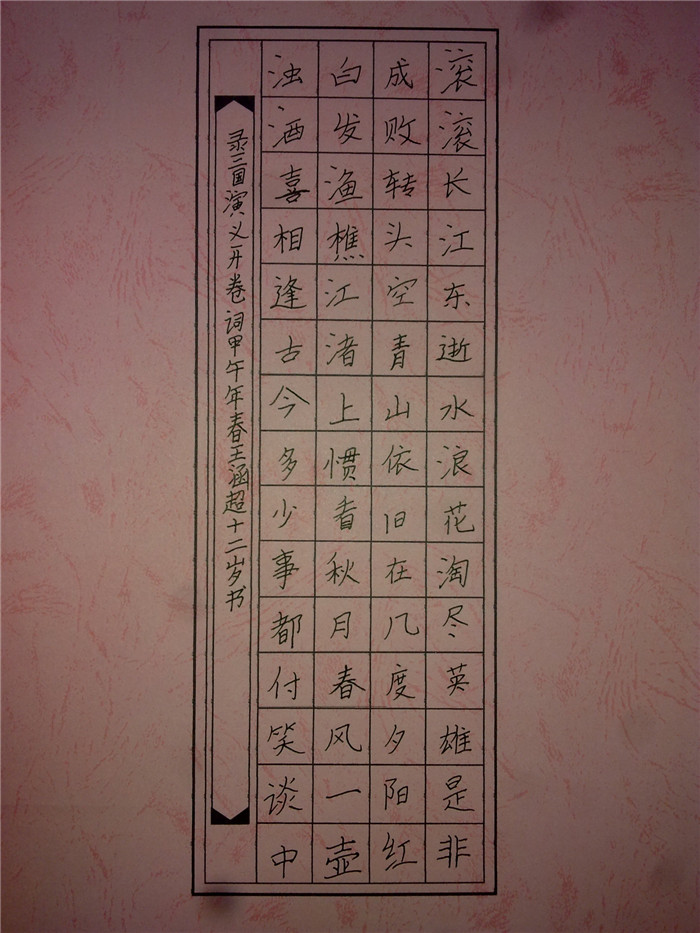 滚滚长江东逝水浪花淘尽英雄是非
成败转头空青山依旧在几度夕阳红
白发渔樵江渚上惯看秋月春风一壶
浊酒喜相逢古今多少事都付笑谈中
录三国演义开卷词甲午年春王涵超十二岁书